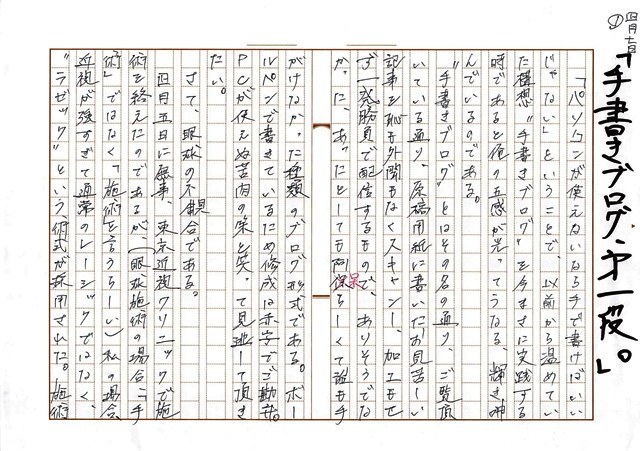 四月十一日
①
「手書きブログ・第一段」。
「パソコンが使えないなら手で書けばいい
じゃない」ということで、以前から温めてい
た構想〝手書きブログ〟を今まさに実践する
時であると俺の五感が光ってうなる、輝き叫
んでいるのである。
〝手書きブログ〟とはその名の通り、ご覧頂
いている通り、原稿用紙に書いたお見苦しい
記事を恥も外聞もなくスキャンし、加工もせ
ず一発勝負で配信するもので、ありそうでな
かった、あったとしても阿呆らしくて誰も手
がけなかった種類のブログ形式である。ボー
ルペンで書きているため修成は赤字でご勘弁。
PCが使えぬ苦肉の策と笑って見逃して頂き
たい。
さて、眼球の不具合である。
四月五日に無事、東京近視クリニックで施
術を終えたのであるが（眼球施術の場合「手
術」ではなく「施術」と言うらしい）私の場合、
近視が強すぎて通常のレーシックではなく、
〝ラゼック〟という術式が採用された。施術